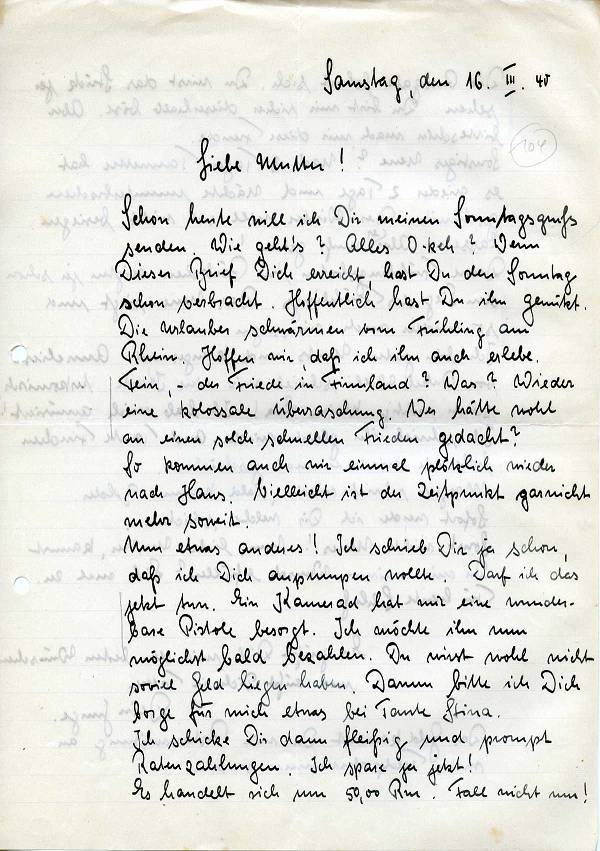 Samstag, den 16. III. 40
104
Liebe Mutter!
Schon heute will ich Dir meinen Sonntagsgruß
senden. Wie geht's? Alles O-keh? Wenn
Dieser Brief Dich erreicht, hast Du den Sonntag
schon verbracht. Hoffentlich hast Du ihn genützt.
Die Urlauber schwärmen vom Frühling am
Rhein. Hoffen wir, daß ich ihn auch erlebe.
Fein, - der Friede in Finnland? Was? Wieder
eine kolossale Überraschung. Wer hätte wohl
an einen solch schnellen Frieden gedacht?
So kommen auch wir einmal plötzlich wieder
nach Haus. Vielleicht ist der Zeitpunkt garnicht
mehr soweit.
Nun etwas anderes! Ich schrieb Dir ja schon,
daß ich Dich anpumpen wollte. Darf ich das
jetzt tun. Ein Kamerad hat mir eine wunder-
bare Pistole besorgt. Ich möchte ihn nun
möglichst bald bezahlen. Du wirst wohl nicht
soviel Geld liegen haben. Darum bitte ich Dich
borge für mich etwas bei Tante Stina.
Ich schicke Dir dann fleißig und prompt
Ratenzahlungen. Ich spare ja jetzt!
Es handelt sich um 50,00 Rm. Fall nicht um!